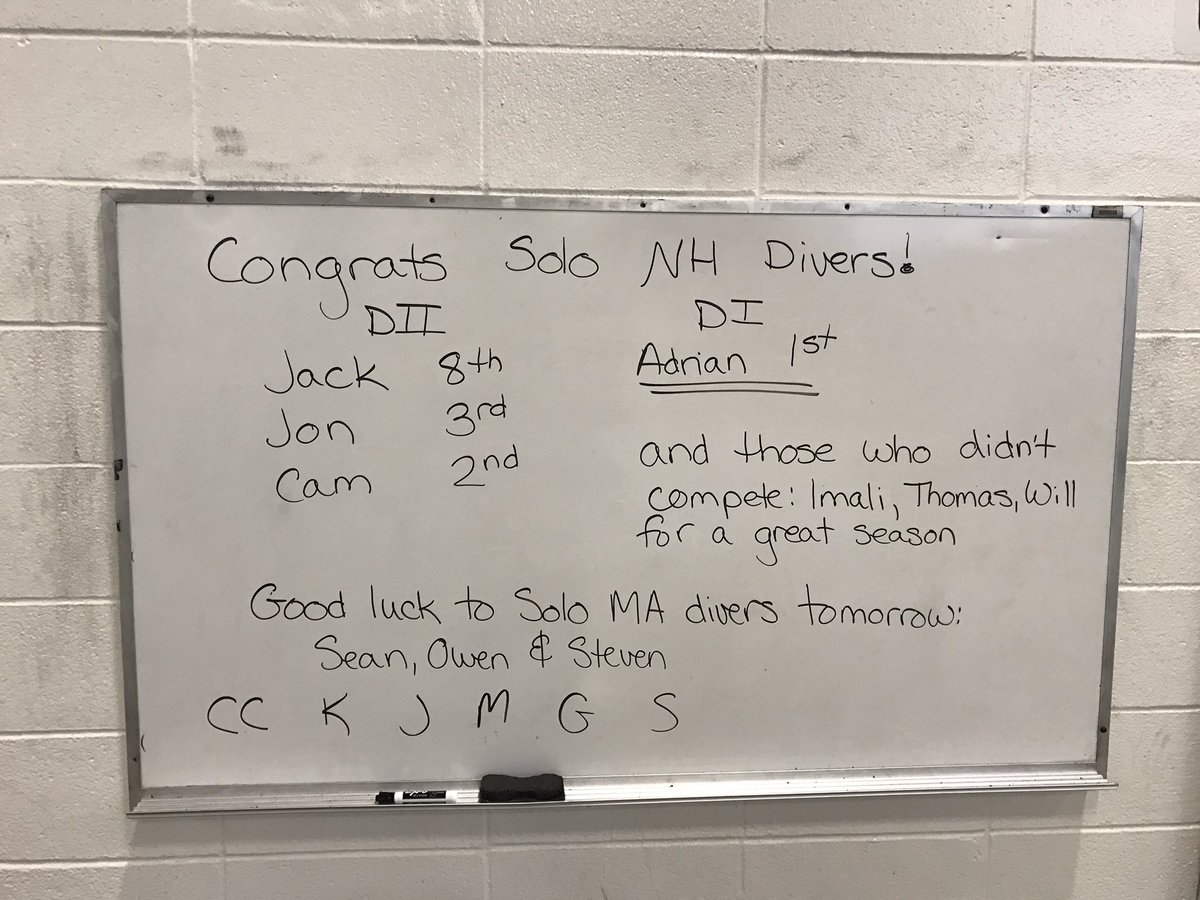 Congrats Solo NH Divers!
DII
Jack 8th
Jon 3rd
Cam 2nd
DI
Adrian 1st
and those who didn't
compete: Imali, Thomas, Will
for a great season
Good luck to Solo MA divers tomorrow:
Sean, Owen & Steven
CC K J M G S